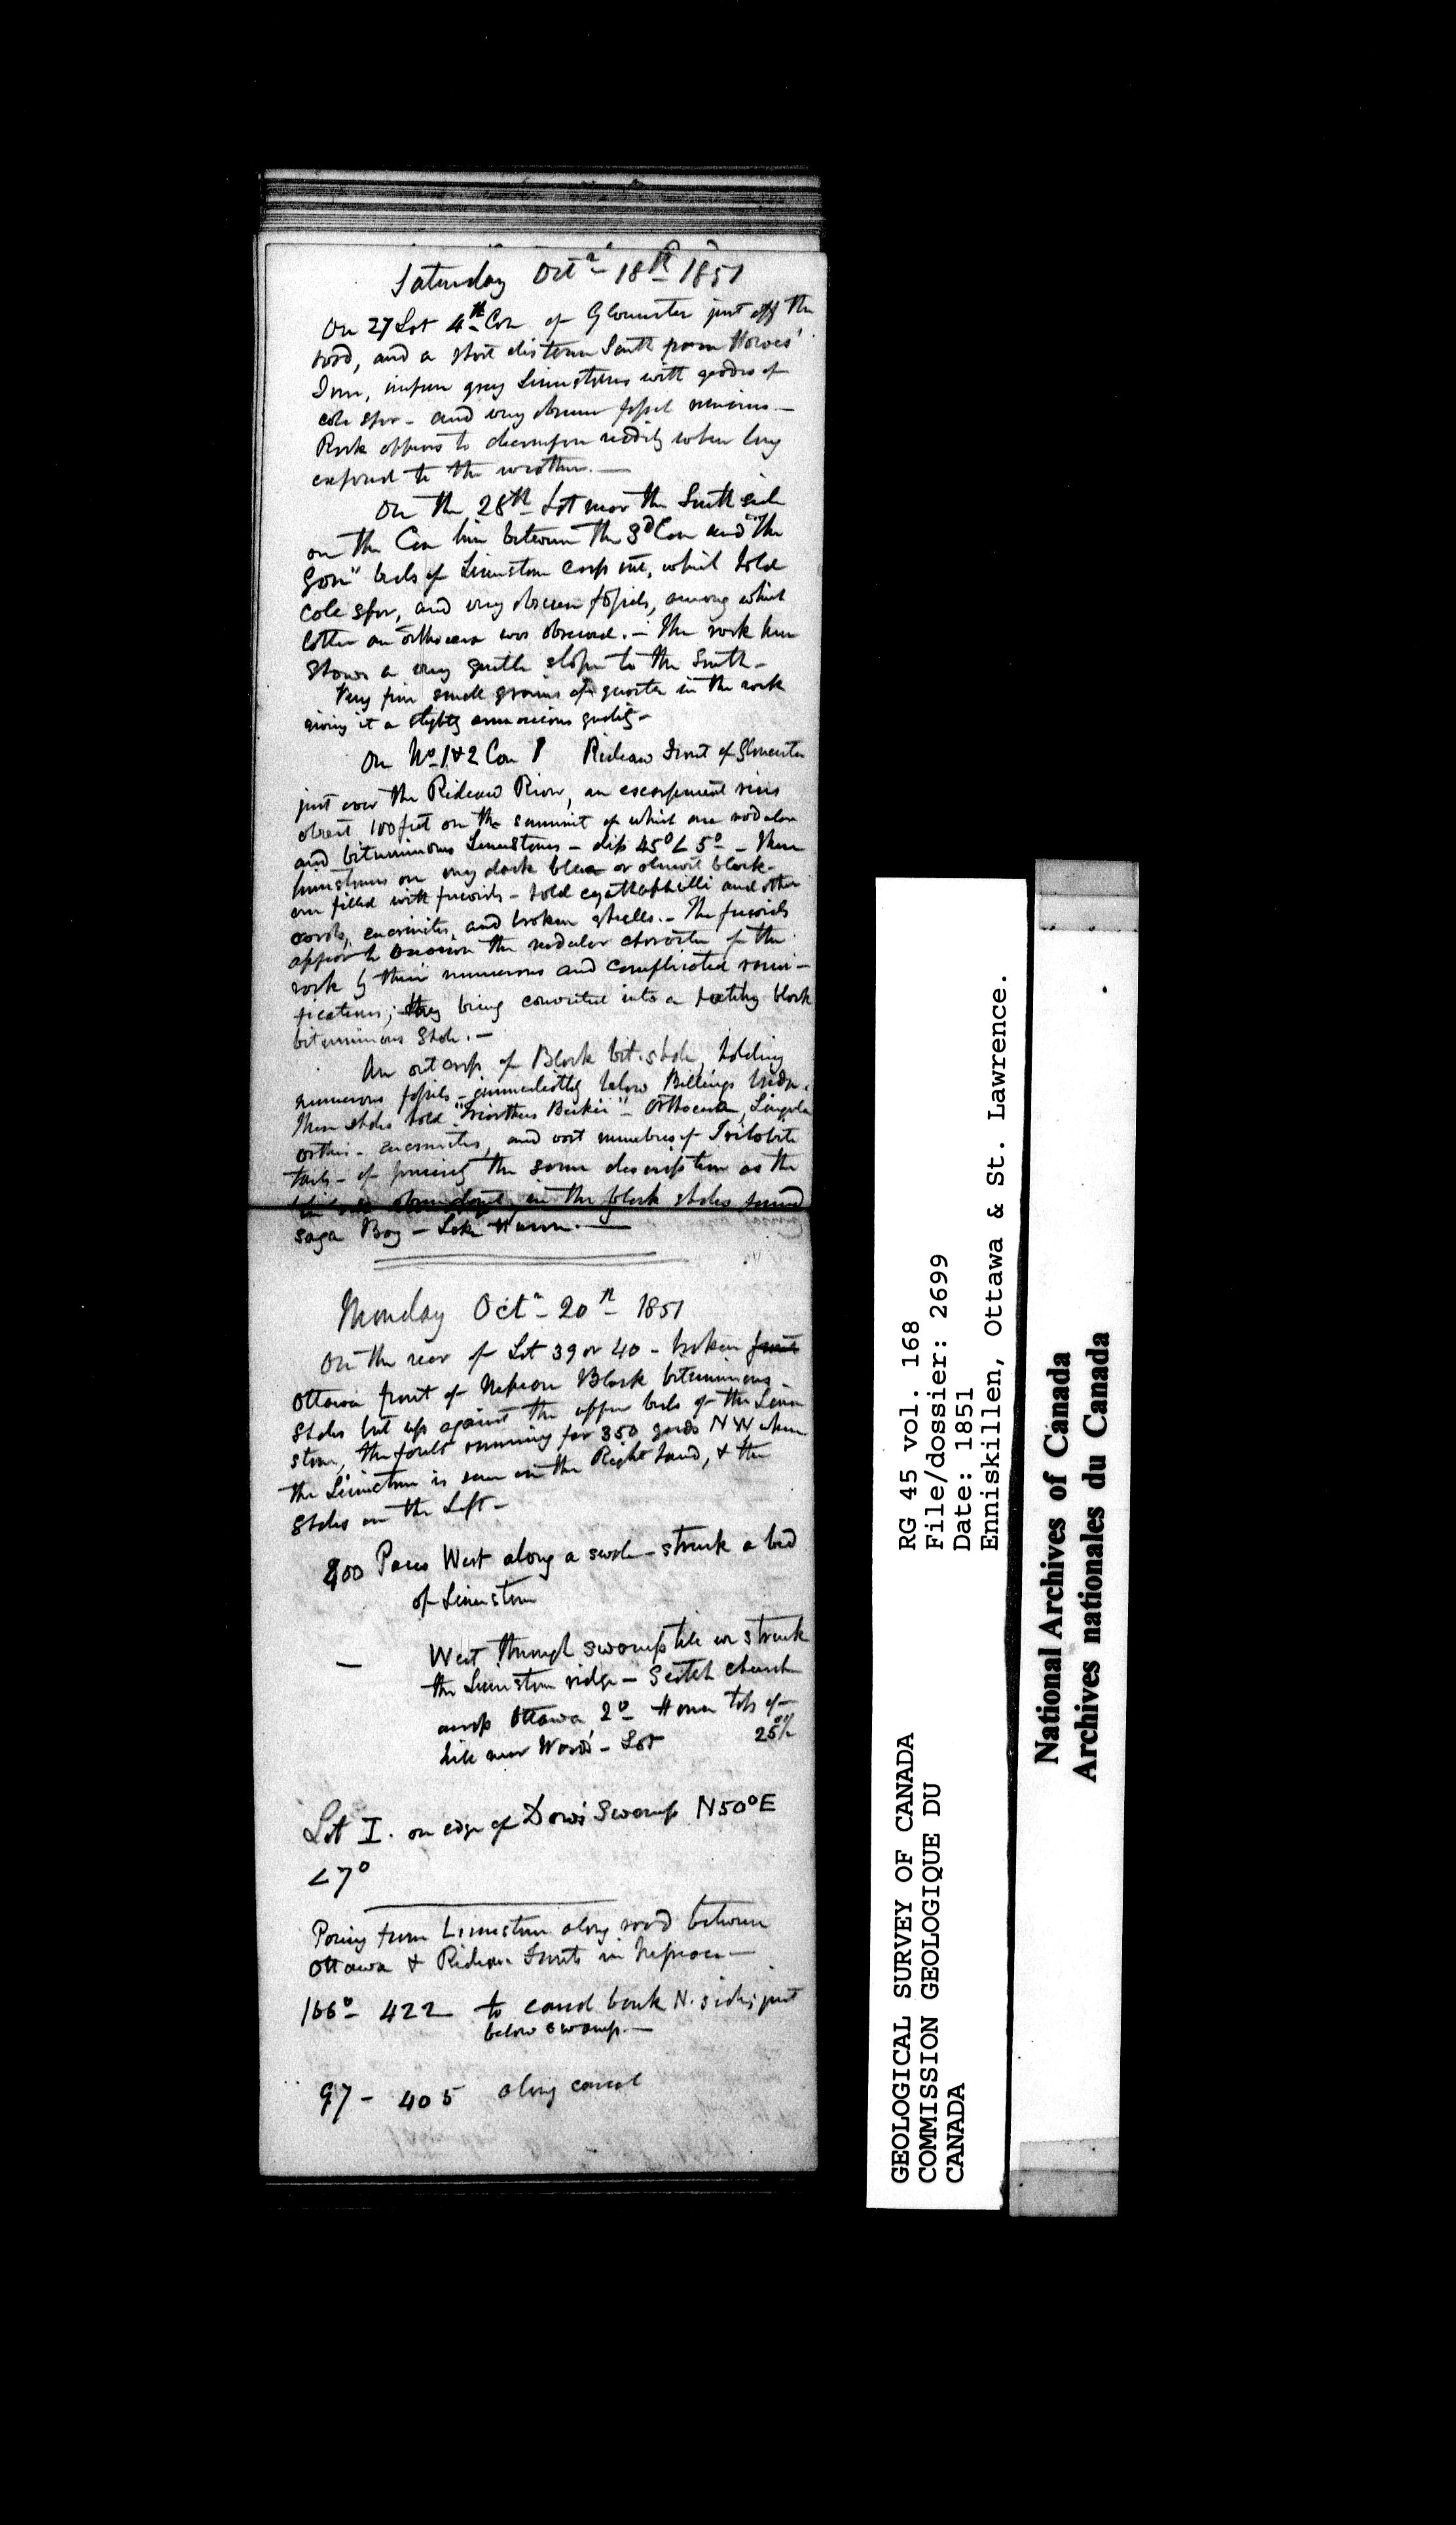 Saturday Octr 18th 1851
On 27 Lot 4th Con of Gloucester just off the
road, and a short distance South from Howes'
Inn, impure gray Limestones with geodes of
calc spar - and very obscure fossil remains -
Rock appears to decompose readily when long
exposed to the weather. -
On the 28th Lot near the South side
on the Con line between the 3d Con and "The
Gore" beds of Limestone crop out, which hold
calc spar, and very obscure fossils, among which
latter an orthocera was observed. - The rock here
shows a very gentle slope to the South -
Very fine small grains of quartz in the rock
giving it a slightly arenaceous quality -
On No 1 & 2 Con 1 Rideau Front of Gloucester
just over the Rideau River, an escarpment rises
about 100 feet on the summit of which are nodular
and bituminous Limestones - dip 45° < 5° - These
limestones are very dark blue or almost black -
are filled with fucoids - hold cyathophilli and other
corals, encrinites, and broken shells. - The fucoids
appear to occasion the nodular character of the
rock by their numerous and complicated rami-
fications; they being converted into a black
bituminous Shale. -
An outcrop of Black bit. shale, holding
numerous fossils - immediately below Billings bridge.
These shales hold "Triarthus Beckii" - Orthocera, Lingula
orthis - encrinites, and vast numbers of Trilobite
tails - of precisely the same description as the
so abundant in the black shales
saga Bay - Lake Huron. -
Monday Octr 20th 1851
On the rear of Lot 39 or 40 - broken front
Ottawa front of Nepean Black bituminous
Shales but up against the upper beds of the Lime
stone, the fault running for 350 yards NW where
the Limestone is seen on the Right hand, & the
Shales on the Left -
200 Paces West along a swale - struck a bed
of Limestone
— West through swamp till we struck
the Limestone ridge - Scotch church
across Ottawa 2° Horn tops of
hill near Ward's - Lot 25 o/
Lot I. on edge of Dow's Swamp N50°E
< 7°
Pacing from Limestone along road between
Ottawa & Rideau Fronts in Nepean -
166° - 422 to canal bank N. side, just
below swamp. -
97 - 405 along canal
RG 45 vol. 168
File/dossier: 2699
Date: 1851
Enniskillen, Ottawa & St. Lawrence.
GEOLOGICAL SURVEY OF CANADA
COMMISSION GEOLOGIQUE DU
CANADA
National Archives of Canada
Archives nationales du Canada